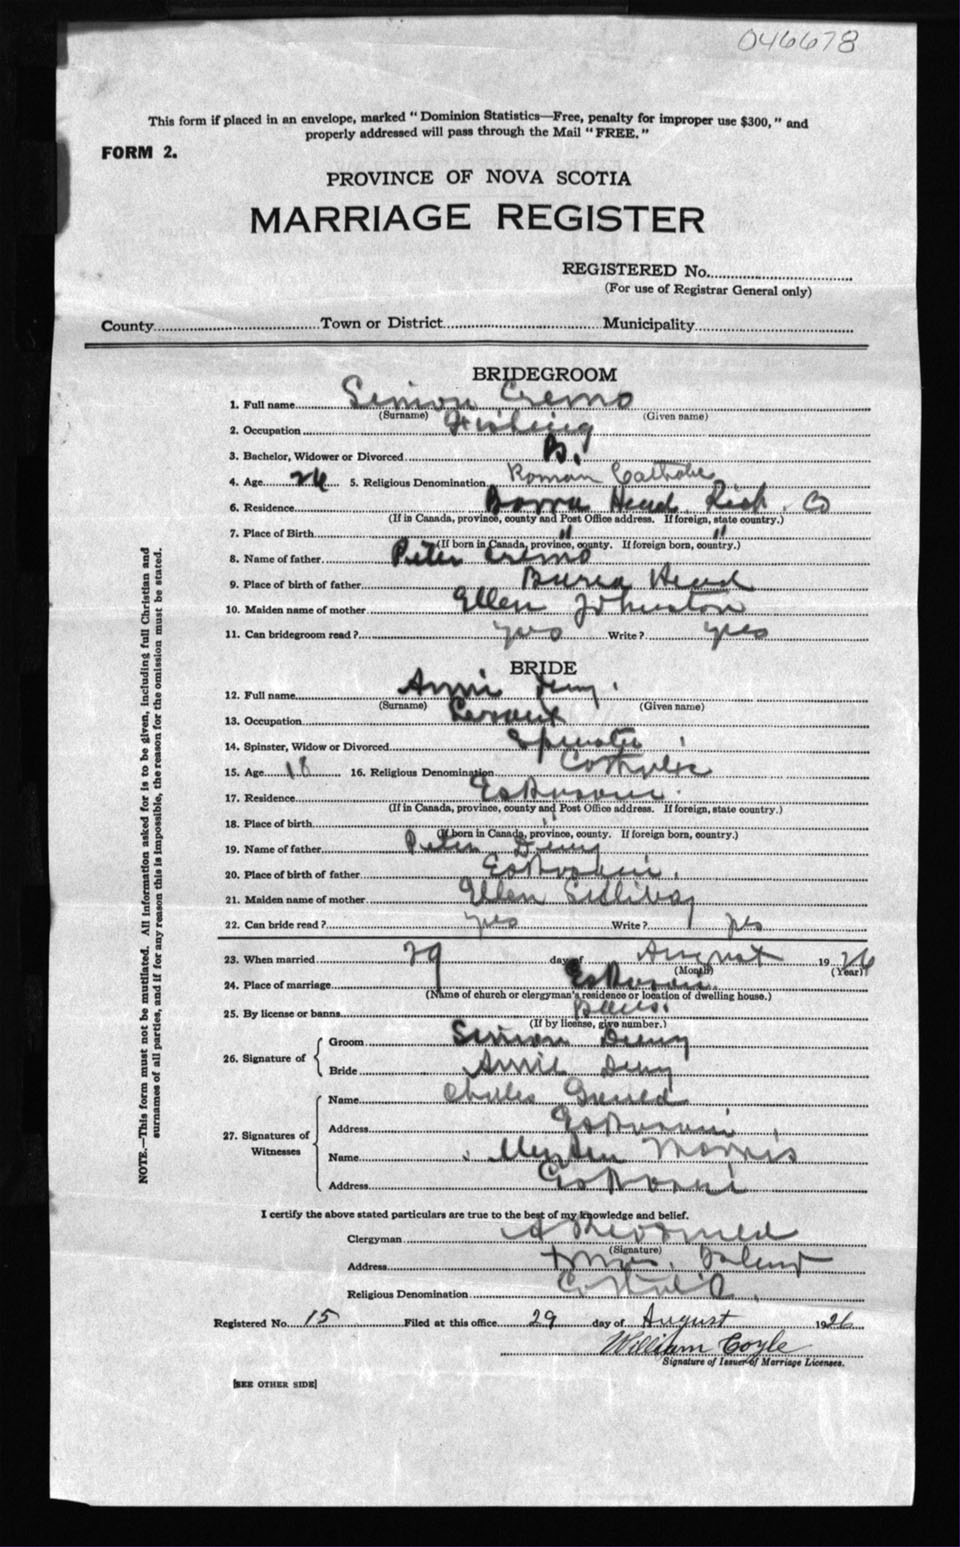 046678
This form if placed in an envelope, marked "Dominion Statistics—Free, penalty for improper use $300," and
properly addressed will pass through the Mail "FREE."
FORM 2.
PROVINCE OF NOVA SCOTIA
MARRIAGE REGISTER
REGISTERED No.
(For use of Registrar General only)
County Town or District Municipality
BRIDEGROOM
1. Full name Simon Cremo
(Surname) (Given name)
2. Occupation Fishing
3. Bachelor, Widower or Divorced B.
4. Age 26 5. Religious Denomination Roman Catholic
6. Residence Barra Head Rich. Co
(If in Canada, province, county and Post Office address. If foreign, state country.)
7. Place of Birth " "
(If born in Canada, province, county. If foreign born, country.)
8. Name of father Peter Cremo
9. Place of birth of father Barra Head
10. Maiden name of mother Ellen Johnston
11. Can bridegroom read? yes Write? yes
BRIDE
12. Full name Annie Deny.
(Surname) (Given name)
13. Occupation Servant
14. Spinster, Widow or Divorced Spinster
15. Age 18 16. Religious Denomination Catholic
17. Residence Eskasoni.
(If in Canada, province, county and Post Office address. If foreign, state country.)
18. Place of birth "
(If born in Canada, province, county. If foreign born, country.)
19. Name of father Peter Deny
20. Place of birth of father Eskasoni.
21. Maiden name of mother Ellen
22. Can bride read? yes Write? yes
23. When married 29 day of August 1926
(Month) (Year)
24. Place of marriage Eskasoni.
(Name of church or clergyman's residence or location of dwelling house.)
25. By license or banns
(If by license, give number.)
26. Signature of
Groom Simon Deny
Bride Annie Deny
27. Signatures of Witnesses
Name Charles Gould
Address Eskasoni.
Name Morris
Address Eskasoni
I certify the above stated particulars are true to the best of my knowledge and belief.
Clergyman
(Signature)
Address Island
Religious Denomination Catholic.
Registered No. 15 Filed at this office 29 day of August 1926
William Coyle
Signature of Issuer of Marriage Licenses.
[SEE OTHER SIDE]
NOTE.—This form must not be mutilated. All information asked for is to be given, including full Christian and
surnames of all parties, and if for any reason this is impossible, the reason for the omission must be stated.